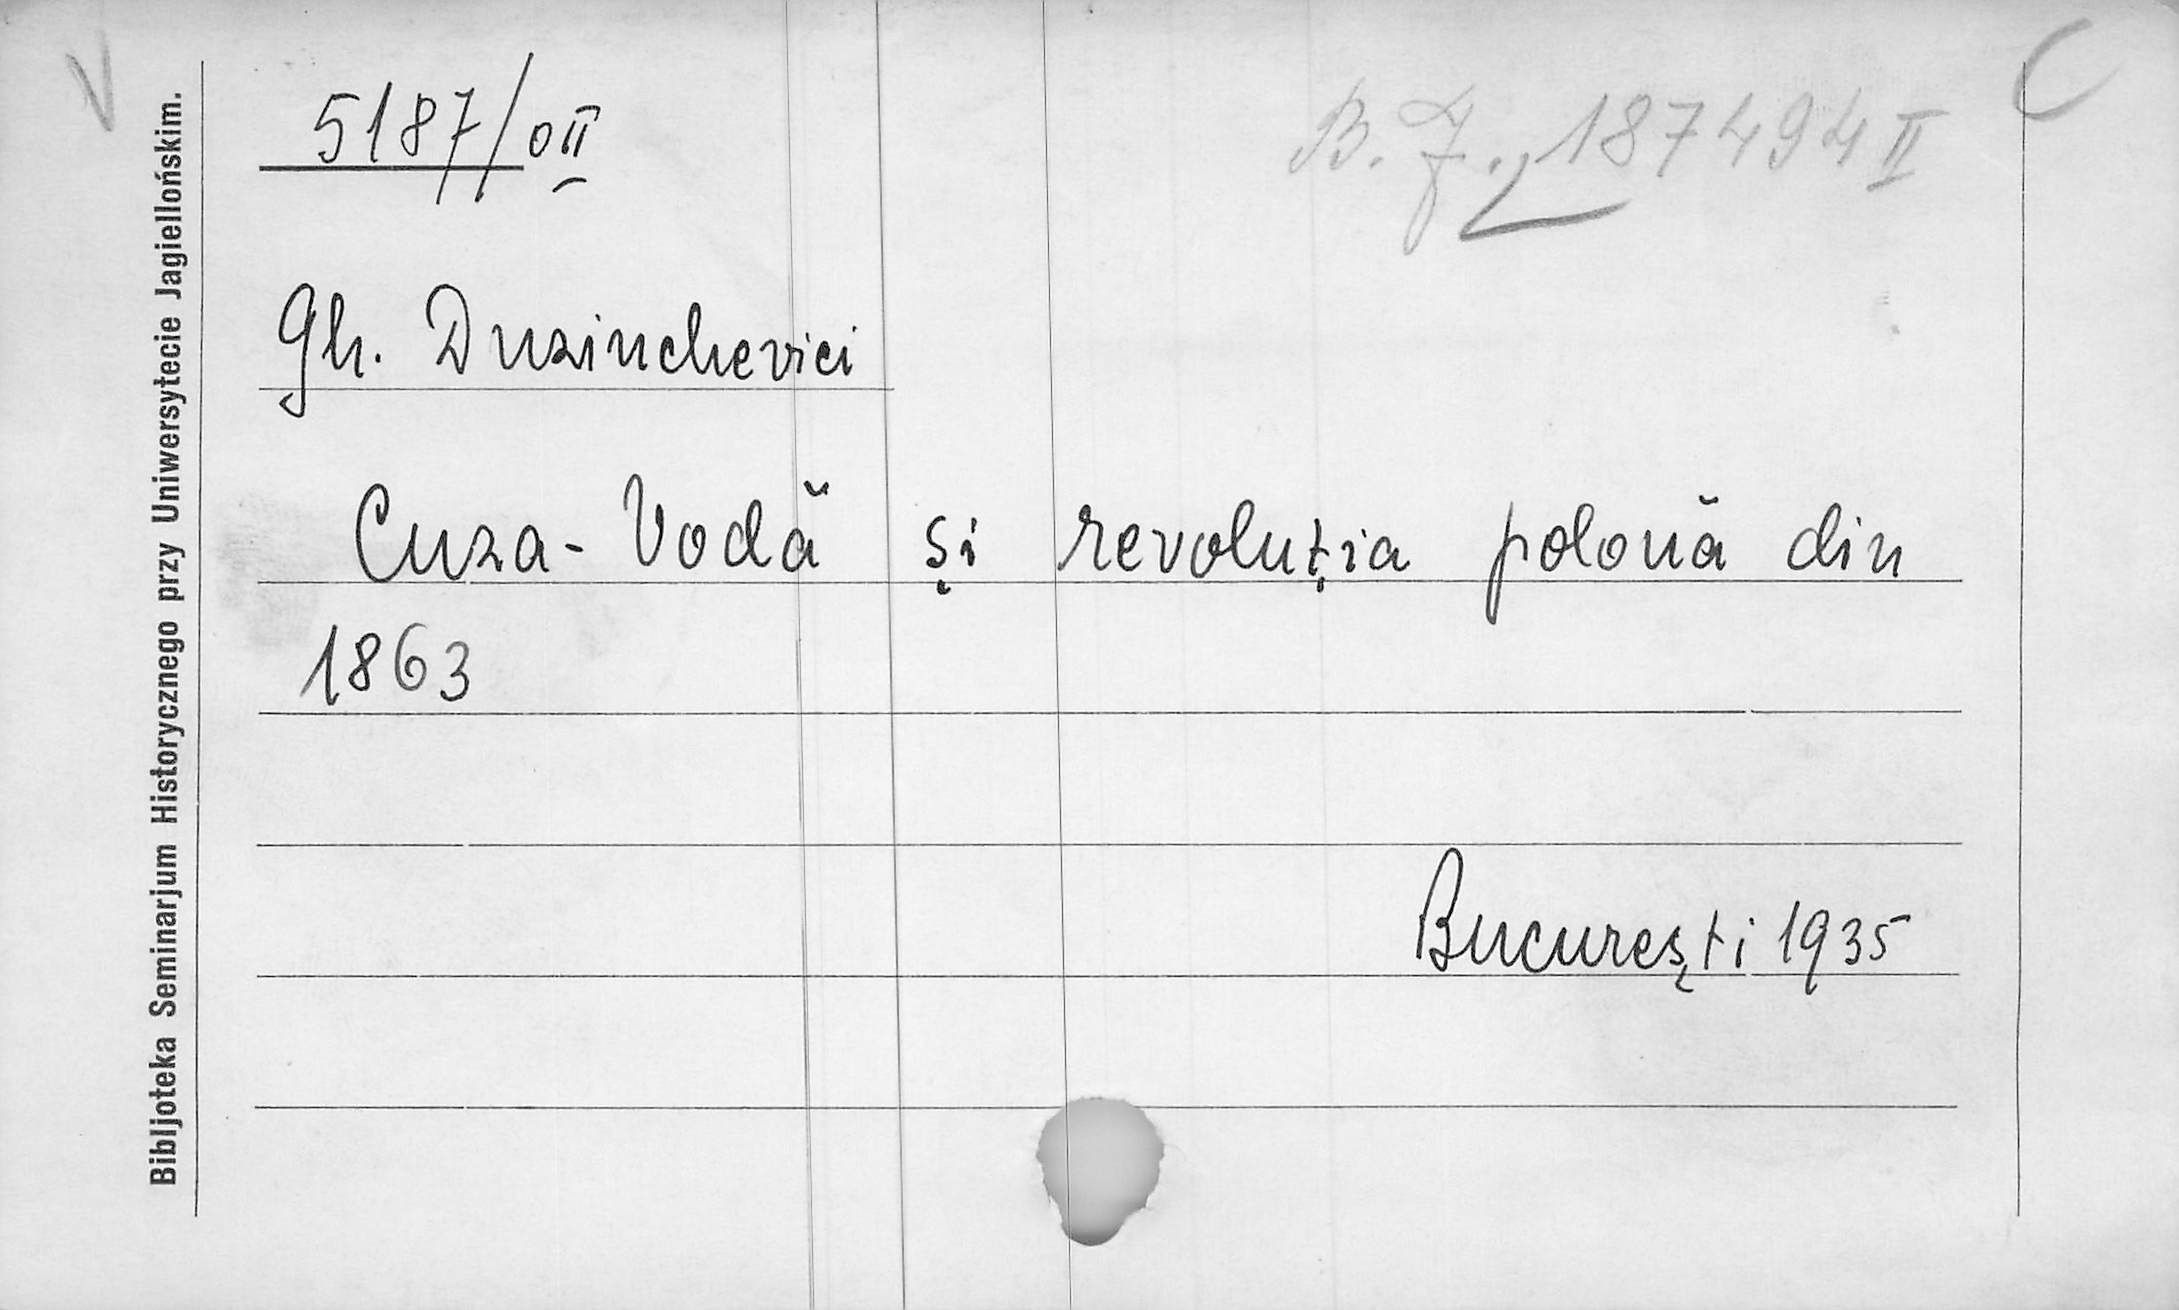 V
C
5187/0II
B.J. 187494 II
Gh. Duzinchevici
Cuza-Vodă și revoluția polonă din
1863
București 1935
Bibljoteka Seminarjum Historycznego przy Uniwersytecie Jagiellońskim.